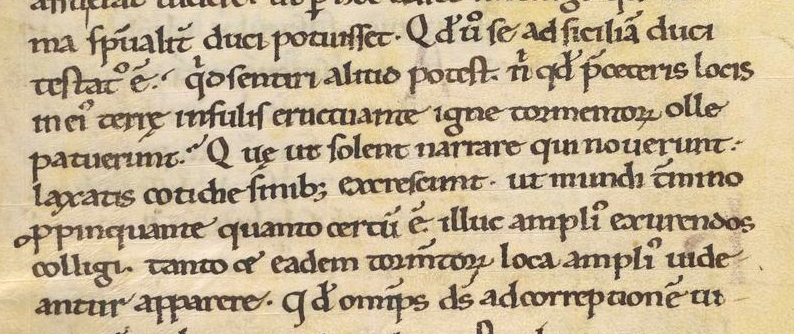 ma sp̄ualit̄ duci potuisset. Qd̄ ůo se ad siciliā duci
testatꝰ ē. qͥd sentiri aliud potest. n̄ qđ p̄ ceteris locis
in eiꝰ terrę insulis eructuante igne tormentoꝝ olle
patuerint. Quę ut solent narrare qui nouerunt.
laxatis cotidie sinibꝫ excrescunt. ut mundi t̄mino
ꝓpinquante quanto certū ē illuc ampliꝰ exurendos
colligi. tanto ⁊ eadem torm̄toꝝ loca ampliꝰ uide
antur apparere. Qđ omīps d̄s ad correptionē ui